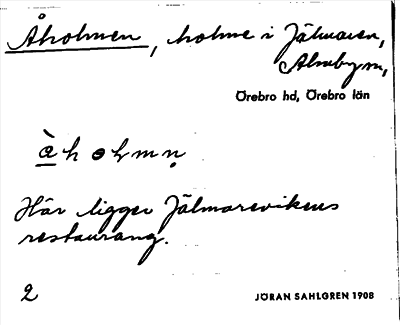 Åholmen, holme i Jälmaren,
Almby sn,
Örebro hd, Örebro län
å̀hɷlmṇ
Här ligger Jälmarevikens
restaurang.
2
JÖRAN SAHLGREN 1908